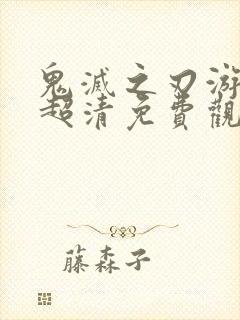 鬼滅之刃游
超清免費觀
藤森子